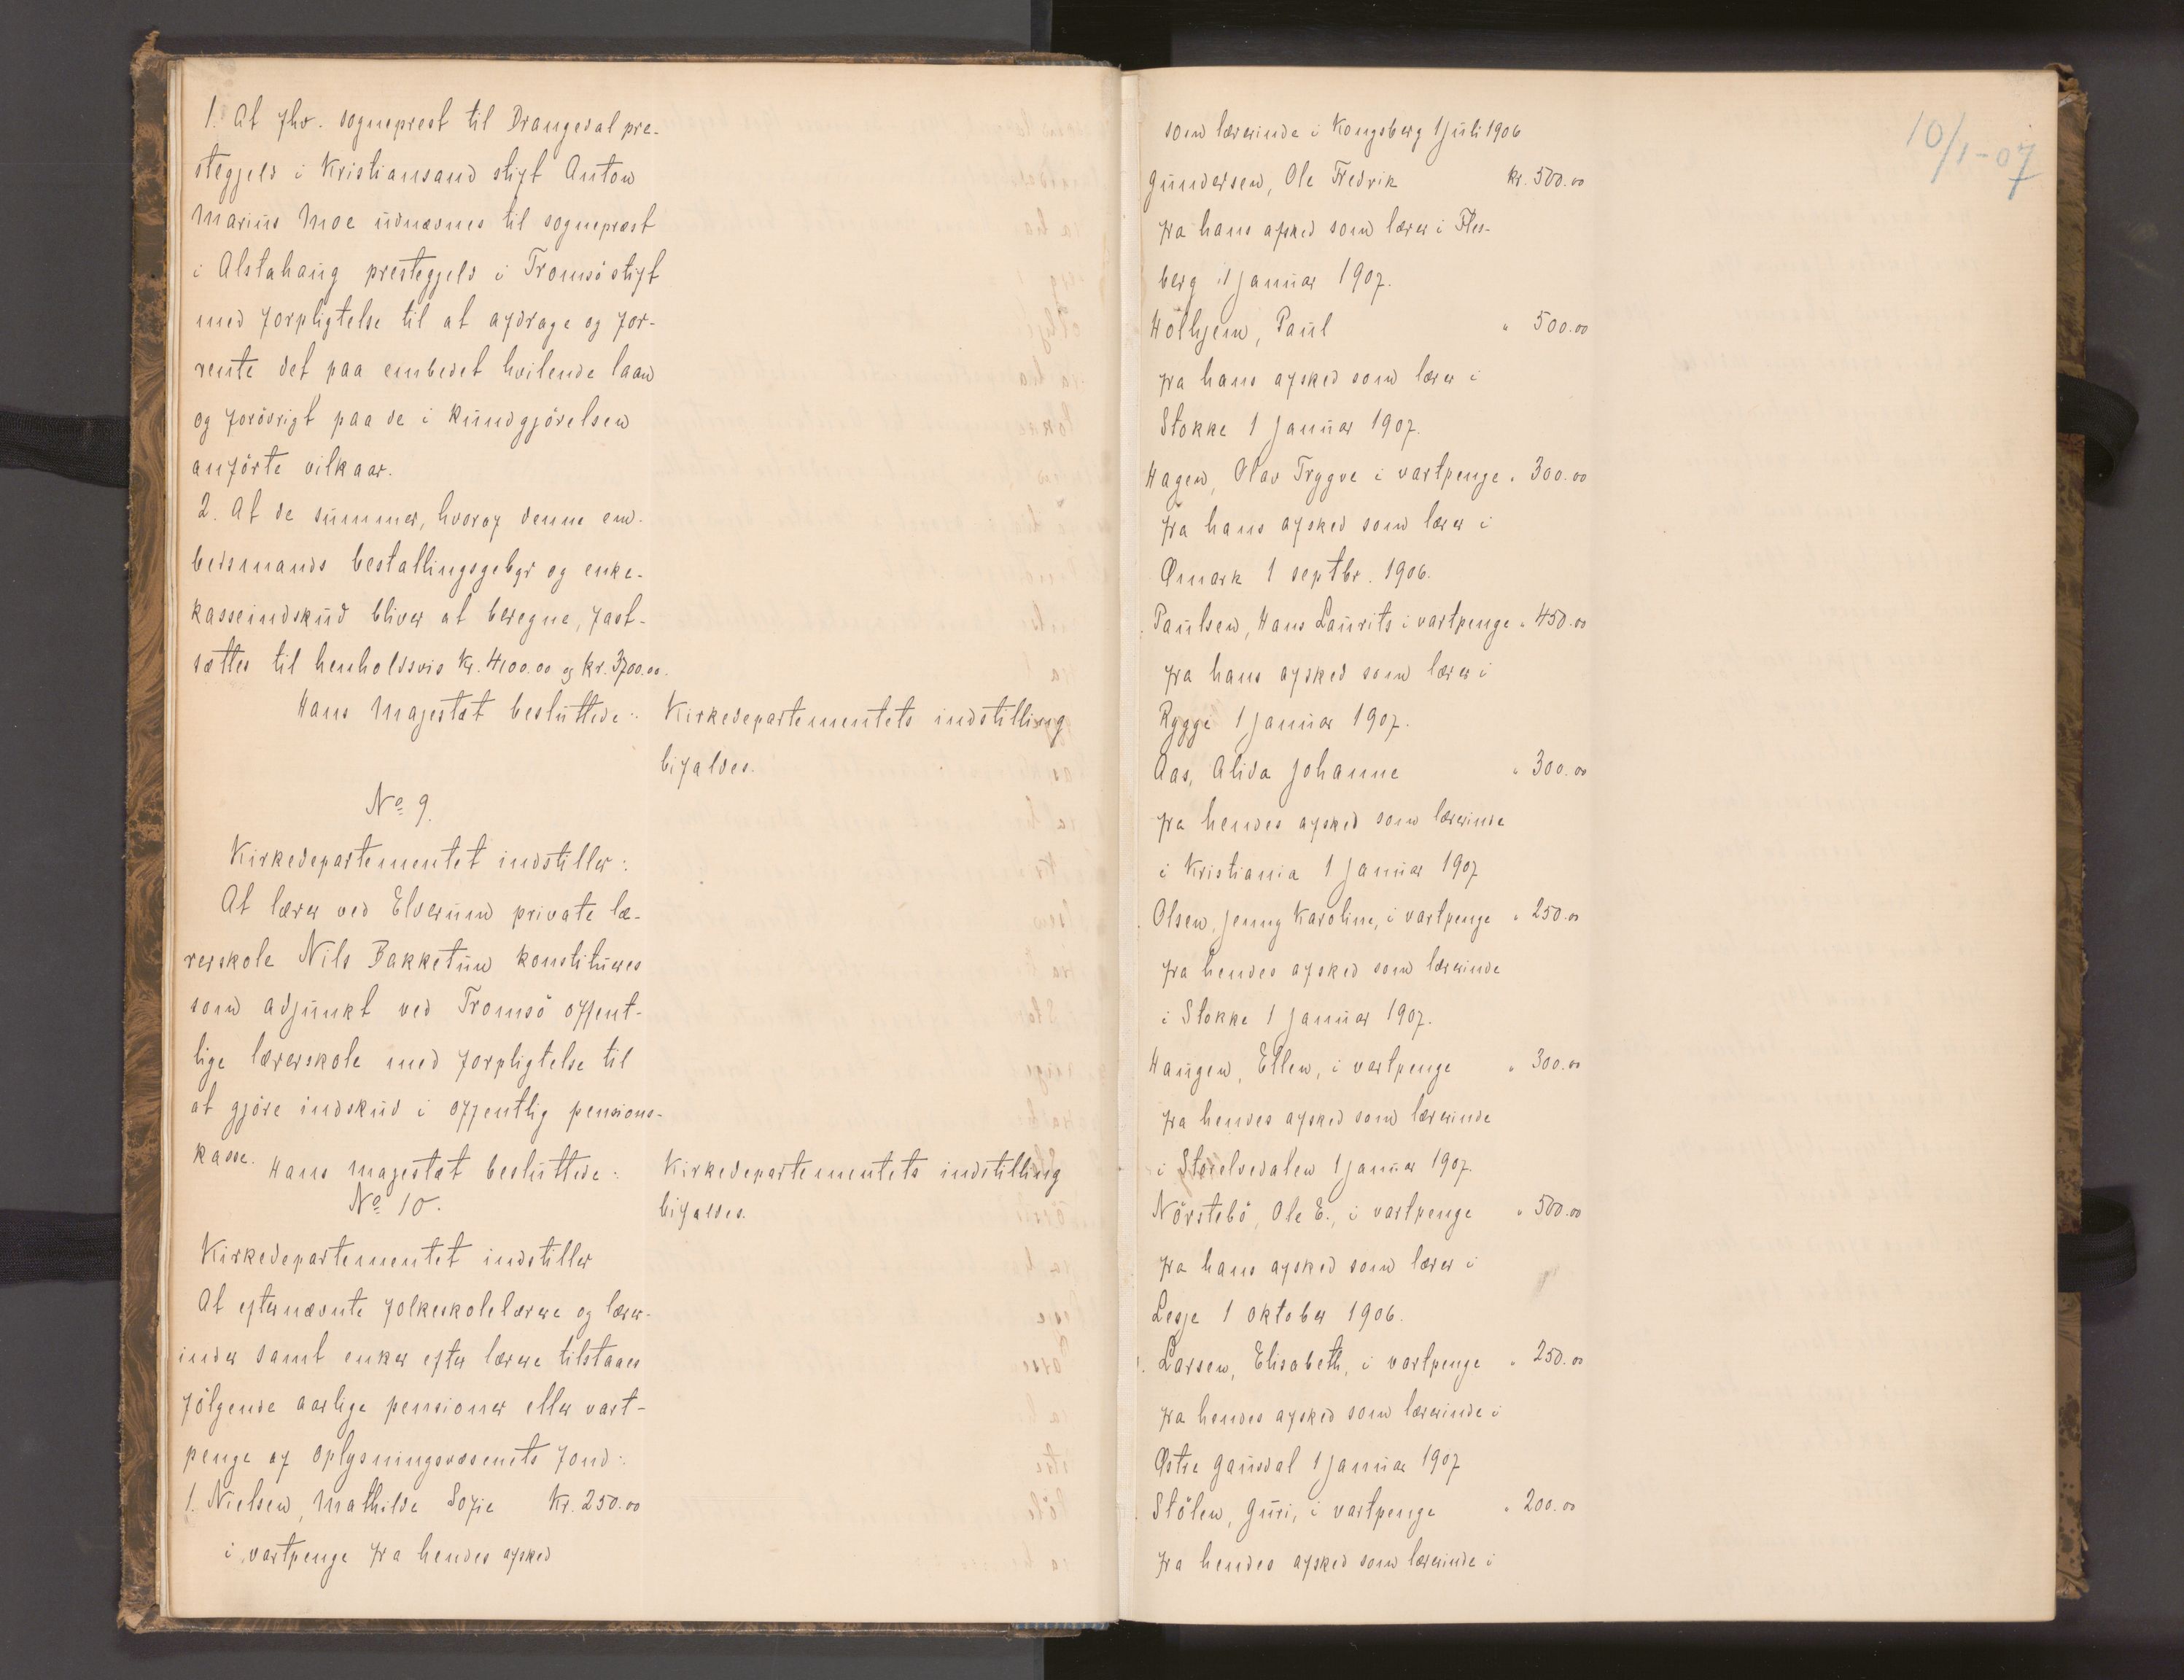 1. At fhv. sogneprest til Drangedal pre-
stegjeld i Kristiansand stift Anton
Marius Moe udnævnes til sogneprest
i Alstahaug prestegjeld i Tromsö stift
med forpligtelse til at afdrage og for-
rente det paa embedet hvilende laan
og forövrigt paa de i kundgjörelsen
anförte vilkaar.
2. At de summer, hvoraf denne em-
bedsmands bestallingsgebyr og enke-
kasseindskud bliver at beregne, fast-
sættes til henholdsvis Kr. 4100.00 og kr. 3700.00.
Hans Majestæt besluttede: Kirkedepartementets indstilling
bifaldes.
No 9.
Kirkedepartementet indstiller:
At lærer ved Elverum private læ-
rerskole Nils Bakketun konstitueres
som adjunkt ved Tromsö offent-
lige lærerskole med forpligtelse til
at gjöre indskud i offentlig pensions-
kasse.
Hans majestæt besluttede: Kirkedepartementets indstilling
bifaldes.
No 10.
Kirkedepartementet indstiller
At efternævnte folkeskolelærere og lærer-
inder samt enker efter lærere tilstaaes
fölgende aarlige pensioner eller vart-
penge af oplysningsvæsenets fond:
1. Nielsen, Mathilde Sofie Kr. 250.00
i vartpenge fra hendes afsked
10/1-07
som lærerinde i Kongsberg 1 juli 1906
Gundersen, Ole Fredrik kr. 500.00
fra hans afsked som lærer i Fles-
berg 1 januar 1907.
Hölhjem, Paul " 500.00
fra hans afsked som lærer i
Stokke 1 januar 1907.
Hagen, Olav Trygve i vartpenge " 300.00
fra hans afsked som lærer i
Ømark 1 septbr. 1906.
Paulsen, Hans Laurits i vartpenge " 450.00
fra hans afsked som lærer i
Rygge 1 januar 1907.
Aas, Alida Johanne " 300.00
fra hendes afsked som lærerinde
i Kristiania 1 januar 1907
Olsen, Jenny Karoline, i vartpenge " 250.00
fra hendes afsked som lærerinde
i Stokke 1 januar 1907.
Haugen, Ellen, i vartpenge " 300.00
fra hendes afsked som lærerinde
i Storelvedalen 1 januar 1907.
Nörstebö, Ole E., i vartpenge " 500.00
fra hans afsked som lærer i
Lesje 1 oktober 1906.
Larsen, Elisabeth, i vartpenge " 250.00
fra hendes afsked som lærerinde i
Østre Gausdal 1 januar 1907
Stölen, Guri, i vartpenge " 200.00
fra hendes afsked som lærerinde i